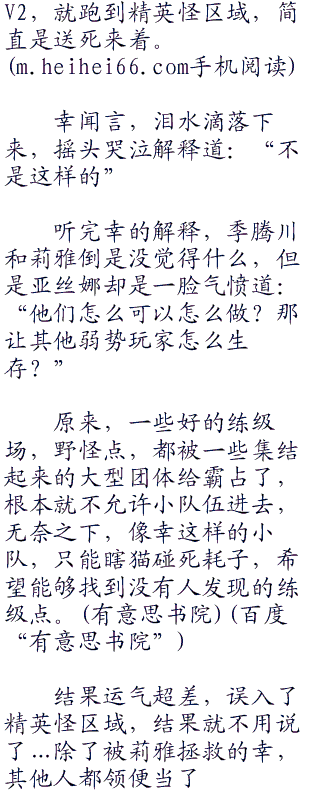 V2，就跑到精英怪区域，简
直是送死来着。
(m.heihei66.com手机阅读)
幸闻言，泪水滴落下
来，摇头哭泣解释道：“不
是这样的”
听完幸的解释，季腾川
和莉雅倒是没觉得什么，但
是亚丝娜却是一脸气愤道：
“他们怎么可以怎么做？那
让其他弱势玩家怎么生
存？”
原来，一些好的练级
场，野怪点，都被一些集结
起来的大型团体给霸占了，
根本就不允许小队伍进去，
无奈之下，像幸这样的小
队，只能瞎猫碰死耗子，希
望能够找到没有人发现的练
级点。(有意思书院)(百度
“有意思书院”)
结果运气超差，误入了
精英怪区域，结果就不用说
了…除了被莉雅拯救的幸，
其他人都领便当了